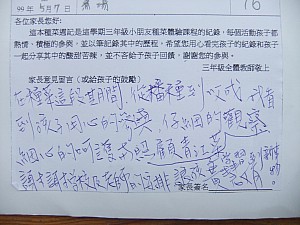 99年5月
16
各位家長您好:
這本種菜週記是這學期三年級小朋友種菜體驗課程的紀錄,每個活動孩子都
熱情、積極的參與,並以筆記錄其中的歷程,希望您用心看完孩子的紀錄和孩子
一起分享其中的酸甜苦辣,並不吝給予孩子回饋,謝謝您的參與。
三年級全體教師敬上
家長意見留言(或給孩子的鼓勵)
在種菜這段期間,從播種到收成,我看
到孩子用心的,仔細的觀察
細心的呵護與照顧青江菜
讓孩子 學習
謝謝學校及老師的安排
家長署名